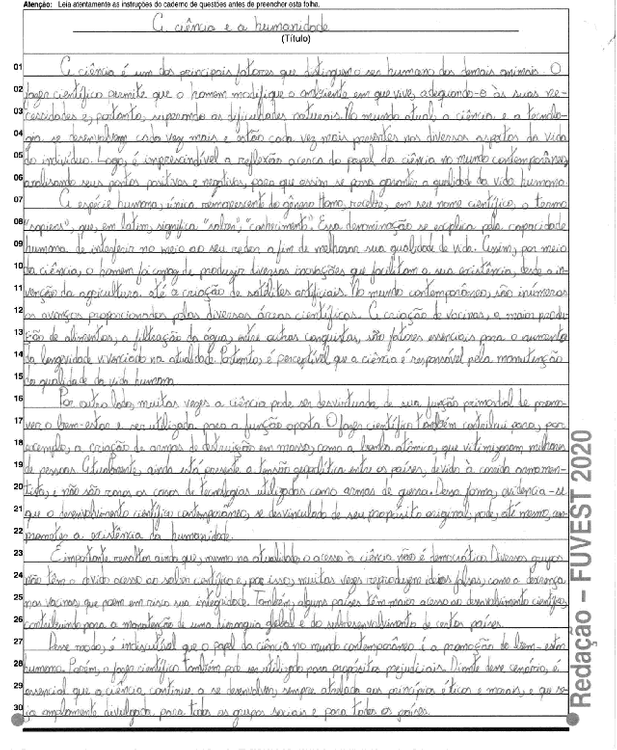 Atenção: Leia atentamente as instruções do caderno de questões antes de preencher esta folha.
A ciência e a humanidade
(Título)
01 A ciência é um dos principais fatores que distingue o ser humano dos demais animais. O
02 fazer científico permite que o homem modifique o ambiente em que vive, adequando-o às suas ne-
03 cessidades e, portanto, superando as dificuldades naturais. No mundo atual, a ciência e a tecnolo-
04 gia se desenvolvem cada vez mais e estão cada vez mais presentes nos diversos aspectos da vida
05 do indivíduo. Logo, é imprescindível a reflexão acerca do papel da ciência no mundo contemporâneo,
06 analisando seus pontos positivos e negativos, para que assim se possa garantir a qualidade da vida humana.
07 A espécie humana, única remanescente do gênero Homo, recebe, em seu nome científico, o termo
08 "sapiens", que, em latim, significa "saber", "conhecimento". Essa denominação se explica pela capacidade
09 humana de interferir no meio ao seu redor a fim de melhorar sua qualidade de vida. Assim, por meio
10 da ciência, o homem foi capaz de produzir diversas inovações que facilitam a sua existência, desde a in-
11 venção da agricultura, até a criação de satélites artificiais. No mundo contemporâneo, são inúmeros
12 os avanços proporcionados pelas diversas áreas científicas. A criação de vacinas, a maior produ-
13 ção de alimentos, a filtração da água, entre outras conquistas, são fatores essenciais para o aumento
14 da longevidade vivenciada na atualidade. Portanto, é perceptível que a ciência é responsável pela manutenção
15 da qualidade da vida humana.
16 Por outro lado, muitas vezes a ciência pode ser desvirtuada de sua função primordial de promo-
17 ver o bem-estar e ser utilizada para a função oposta. O fazer científico também contribui para, por
18 exemplo, a criação de armas de destruição em massa, como a bomba atômica, que vitimizaram milhares
19 de pessoas. Atualmente, ainda está presente a tensão geopolítica entre os países, devido à corrida armamen-
20 tista, e não são raros os casos de tecnologias utilizadas como armas de guerra. Dessa forma, evidencia-se
21 que o desenvolvimento científico contemporâneo, se desvinculado de seu propósito original, pode, até mesmo, com-
22 prometer a existência da humanidade.
23 É importante ressaltar ainda que, mesmo na atualidade, o acesso à ciência não é democrático. Diversos grupos
24 não têm o devido acesso ao saber científico e, por isso, muitas vezes reproduzem ideias falsas, como a descrença
25 nas vacinas, que põem em risco sua integridade. Também, alguns países têm maior acesso ao desenvolvimento científico,
26 contribuindo para a manutenção de uma hierarquia global e do subdesenvolvimento de certos países.
27 Desse modo, é indiscutível que o papel da ciência no mundo contemporâneo é a promoção do bem-estar
28 humano. Porém, o fazer científico também pode ser utilizado para propósitos prejudiciais. Diante desse cenário, é
29 essencial que a ciência continue a se desenvolver, sempre atrelada aos princípios éticos e morais, e que se-
30 ja amplamente divulgada para todos os grupos sociais e para todos os países.
Redação – FUVEST 2020